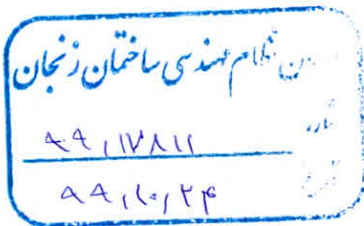 نظام مهندسی ساختمان زنجان
۹۹,۱۷۸۱۱
۹۹,۱۰,۲۴